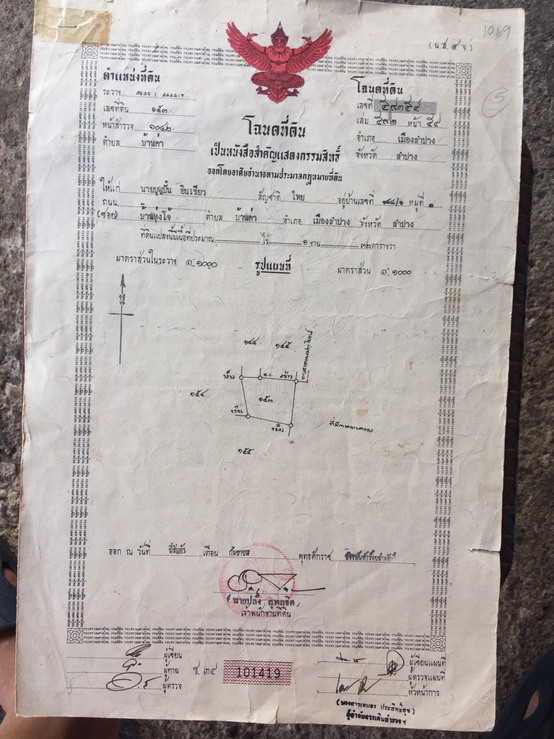 1069
(น.ส. ๔ จ.)
ตำแหน่งที่ดิน
ระวาง
เลขที่ดิน ๑๕๓
หน้าสำรวจ ๑๐๔๒
ตำบล บ้านค่า
โฉนดที่ดิน
เลขที่ ๔๙๓๕๔
เล่ม ๔๙๒ หน้า ๕๔
อำเภอ เมืองลำปาง
จังหวัด ลำปาง
โฉนดที่ดิน
เป็นหนังสือสำคัญแสดงกรรมสิทธิ์
ออกโดยอาศัยอำนาจตามประมวลกฎหมายที่ดิน
ให้แก่ นายบุญปั๋น อินเขียว สัญชาติ ไทย อยู่บ้านเลขที่ ๑๘๘/๑ หมู่ที่ ๑
ถนน
(ซอย) บ้านทุ่งโจ้ ตำบล บ้านค่า อำเภอ เมืองลำปาง จังหวัด ลำปาง
ที่ดินแปลงนี้มีเนื้อที่ประมาณ ไร่ ๑ งาน ๓๒ ตารางวา
มาตราส่วนในระวาง ๑:๑๐๐๐ รูปแผนที่ มาตราส่วน ๑:๑๐๐๐
๑๔๔ ๑๔๕
๑๕๔ ๑๕๓
๑๕๕
ออก ณ วันที่ เดือน กันยายน พุทธศักราช
เจ้าพนักงานที่ดิน
ผู้เขียน
ผู้ทาน
ผู้ตรวจ
ช. ๓๙ 101419
ผู้เขียนแผนที่
ผู้ตรวจแผนที่
หัวหน้าการ